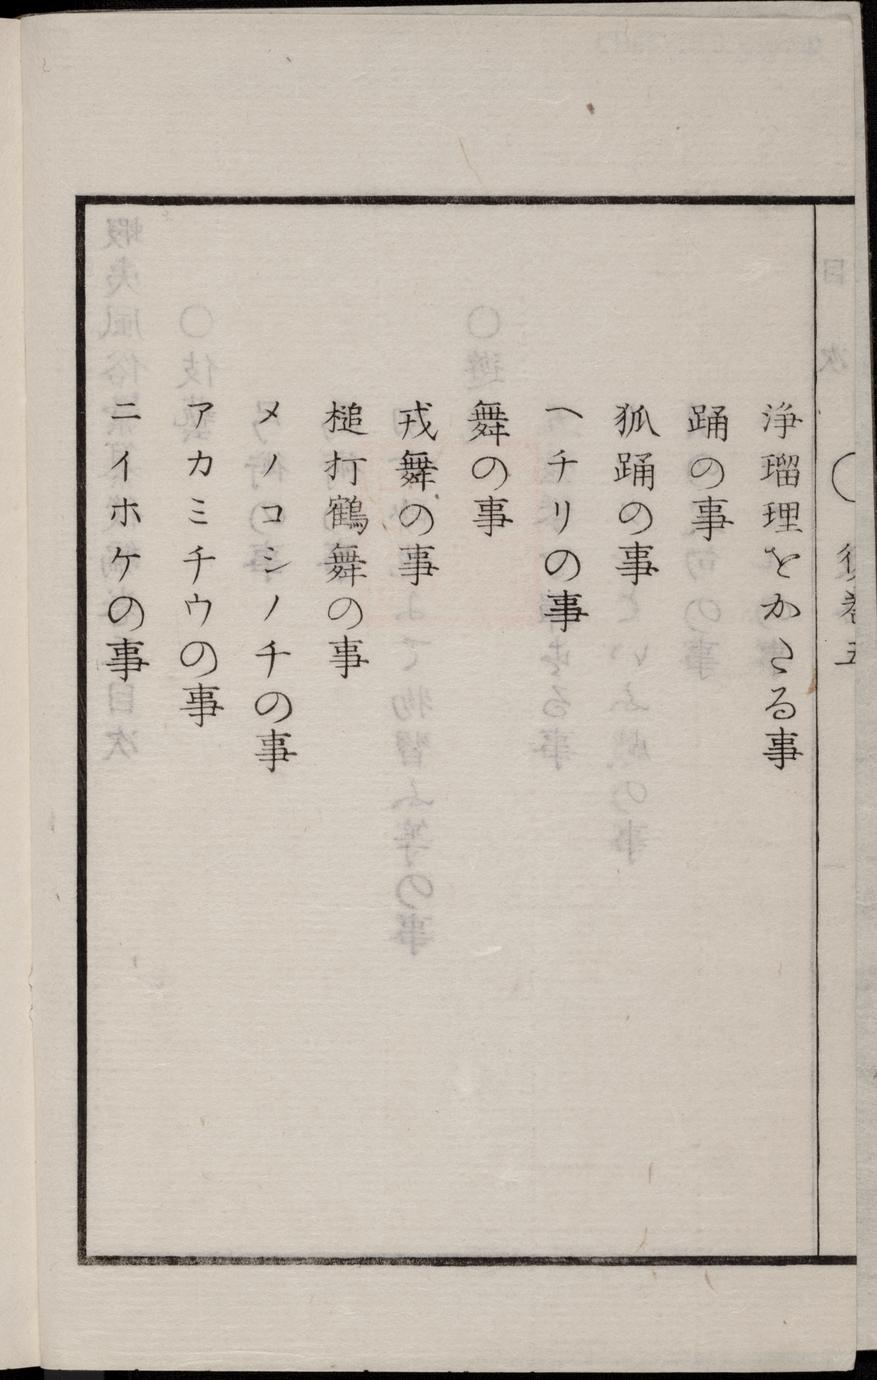 浄瑠理をかたる事
踊の事
狐踊の事
ヘチリの事
舞の事
戎舞の事
槌打鶴舞の事
メノコシノチの事
アカミチウの事
ニイホケの事